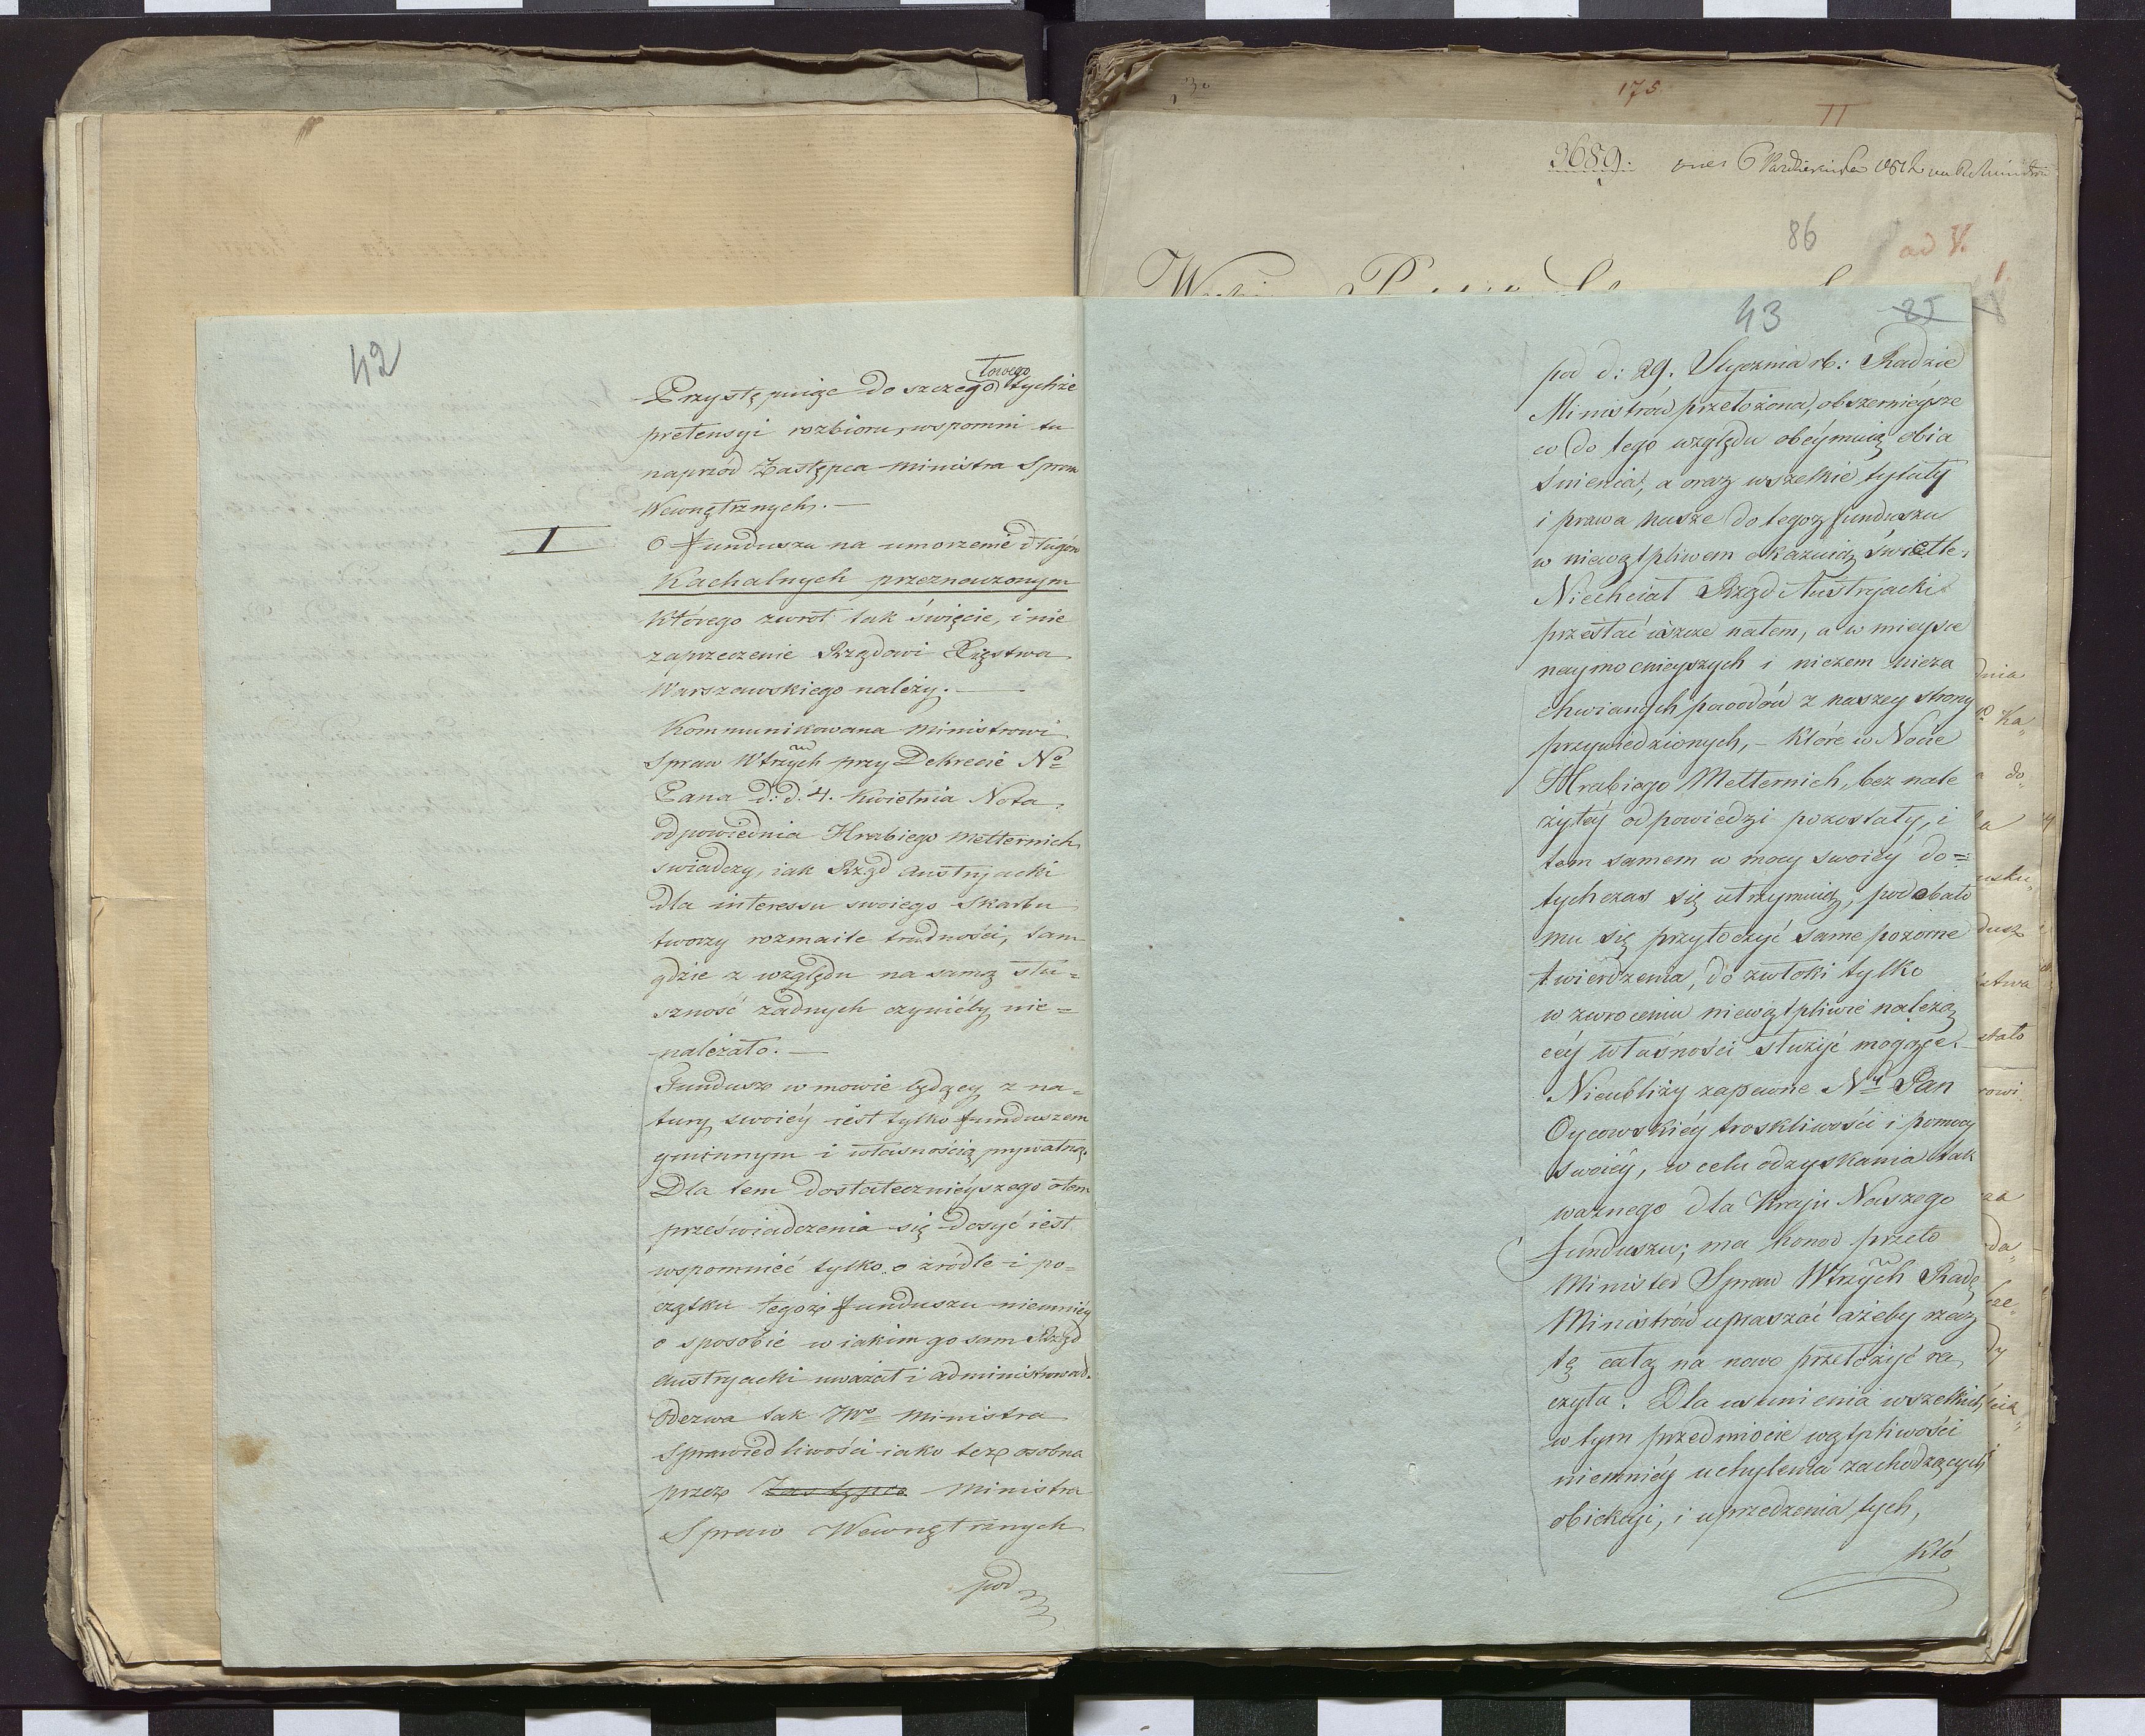 42
Przystępuiąc do szczegółowego tychże
pretensyi rozbioru, wspomni tu
naprzód Zastępca Ministra Spraw
Wewnętrznych. —
I
O funduszu na umorzenie długów
Kachalnych przeznaczonym
którego zwrot tak święcie, i nie
zaprzeczenie Rządowi Xięstwa
Warszawskiego należy. —
Kommunikowana Ministrowi
Spraw Wtrzych przy Dekrecie No
Pana d: d: 4. Kwietnia Nota
odpowiednia Hrabiego Metternich
swiadczy, iak Rząd Austryacki
dla interessu swoiego Skarbu
tworzy rozmaite trudności, tam
gdzie z względu na samą słu=
szność żadnych czynićby nie=
należało. —
Fundusz w mowie będący z na=
tury swoiéy iest tylko funduszem
gminnym i własnością prywatną.
Dla tem dostatecznieyszego otem
przeświadczenia się dosyć iest
wspomnieć tylko o źródle i po=
czątku tegoż funduszu niemniéy
o sposobie w iakim go sam Rząd
Austryacki uważał i administrował.
Odezwa tak JWo Ministra
Sprawiedliwości iako też osobna
przez Zastępca Ministra
Spraw Wewnętrznych
pod
175
II
3689.
86
ad V.
1.
43
85
pod d: 29. Stycznia rb: Radzie
Ministrów przełożona, obszernieysze
co do tego względu obéymuią obia
śnienia, a oraz wszelkie tytuły
i prawa nasze do tegoż funduszu
w niewątpliwem okazuią świetle.
Niechciał Rząd Austryacki
przestać iészcze natem, a w mieysce
naymocnieyszych i niczem nieza
chwianych powodów z naszey strony
przywiedzionych, — które w Nocie
Hrabiego Metternich, bez nale
żytéy odpowiedzi pozostały, i
tem samem w mocy swoiéy do=
tychczas się utrzymuią, podobało
mu się przytoczyć same pozorne
twierdzenia, do zwłoki tylko
w zwroceniu niewątpliwie należą
céy własności służyć mogące.
Nieubliży zapewne Ny Pan
Oycowskiéy troskliwości i pomocy
swoiéy, w celu odzyskania tak
ważnego dla Kraju Naszego
funduszu; ma honor przeto
Minister Spraw Wtrzych Radę
Ministrów upraszać ażeby rzecz
tę całą na nowo przełożyć ra
czyła. Dla usunienia wszelkich
w tym przedmiocie wątpliwości
niemniéy uchylenia zachodzących
obiekcyi, i uprzedzenia tych,
któ